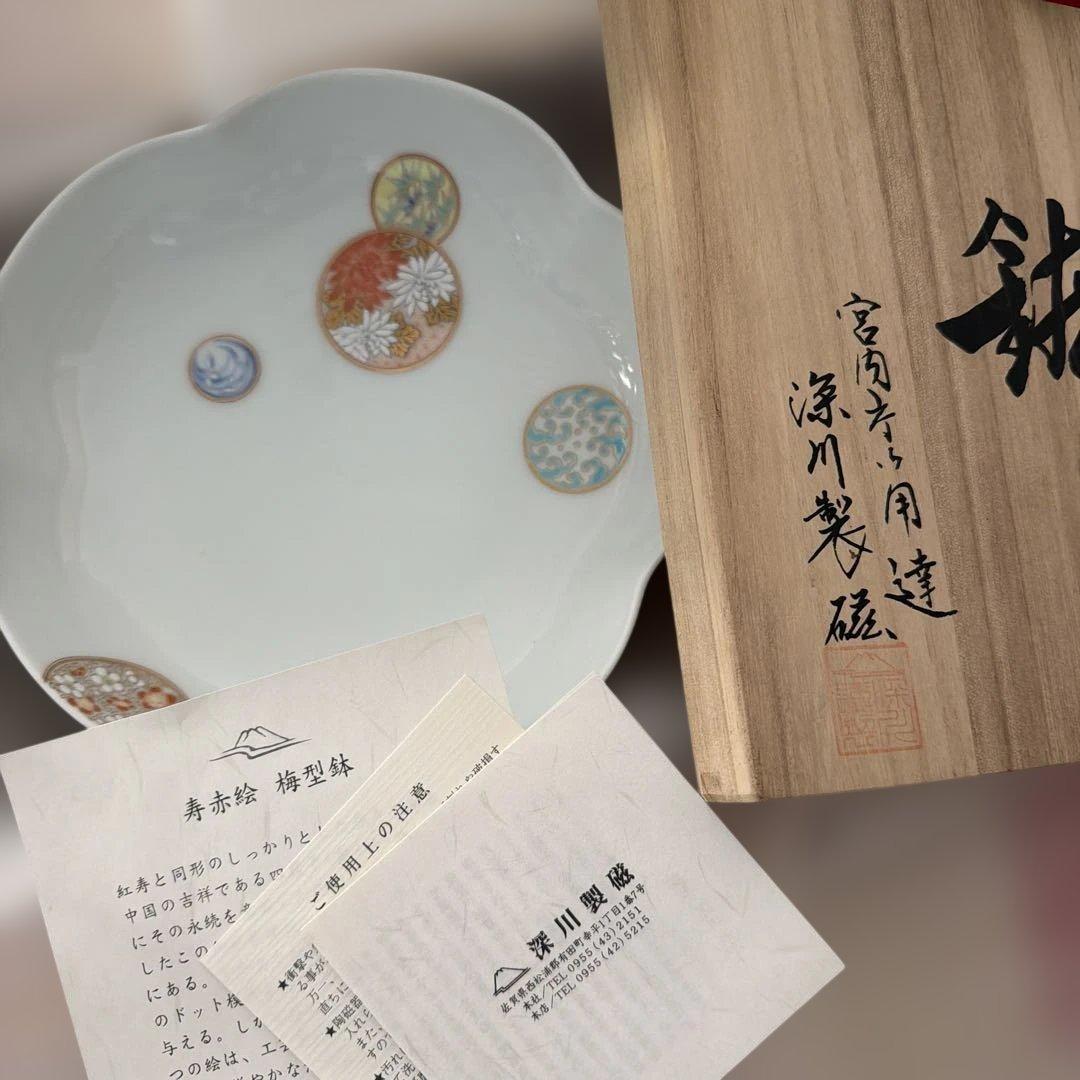 鉢
宮内庁御用達
深川製磁
寿赤絵 梅型鉢
紅寿と同形のしっかりと
中国の吉祥である四
にその永続を
したこの
にある。
のドット模
与える。しか
つの絵は、エ
やかな
ご使用上の注意
の破損す
★衝撃や
る事が
万一、
直ちに
★陶磁器
入れら
また、
すので
★汚れ
て洗
深川製磁
佐賀県西松浦郡有田町幸平1丁目1番7号
本社/TEL 0955(43)2151
本店/TEL 0955(42)5215